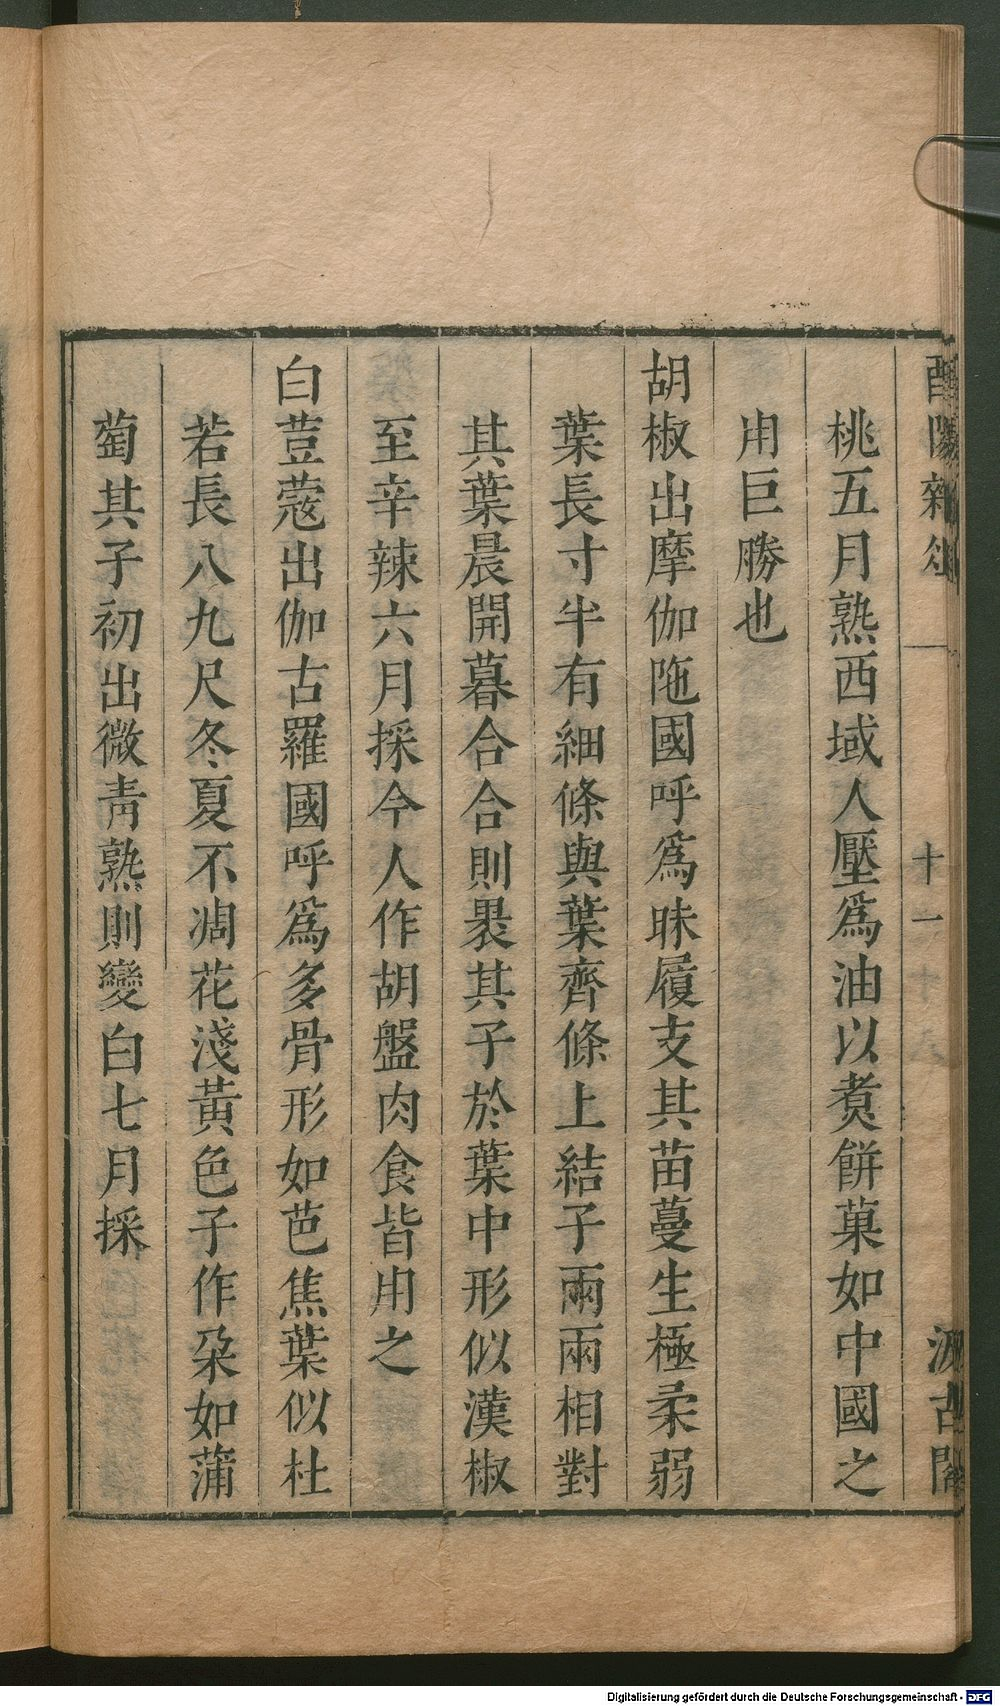 酉陽雜俎
十一
汲古閣
桃五月熟西域人壓為油以煑餅菓如中國之
用巨勝也
胡椒出摩伽陁國呼為昧履支其苗蔓生極柔弱
葉長寸半有細條與葉齊條上結子兩兩相對
其葉晨開暮合合則裹其子於葉中形似漢椒
至辛辣六月採今人作胡盤肉食皆用之
白荳蔻出伽古羅國呼為多骨形如芭焦葉似杜
若長八九尺冬夏不凋花淺黃色子作朶如蒲
萄其子初出微青熟則變白七月採
Digitalisierung gefördert durch die Deutsche Forschungsgemeinschaft - DFG